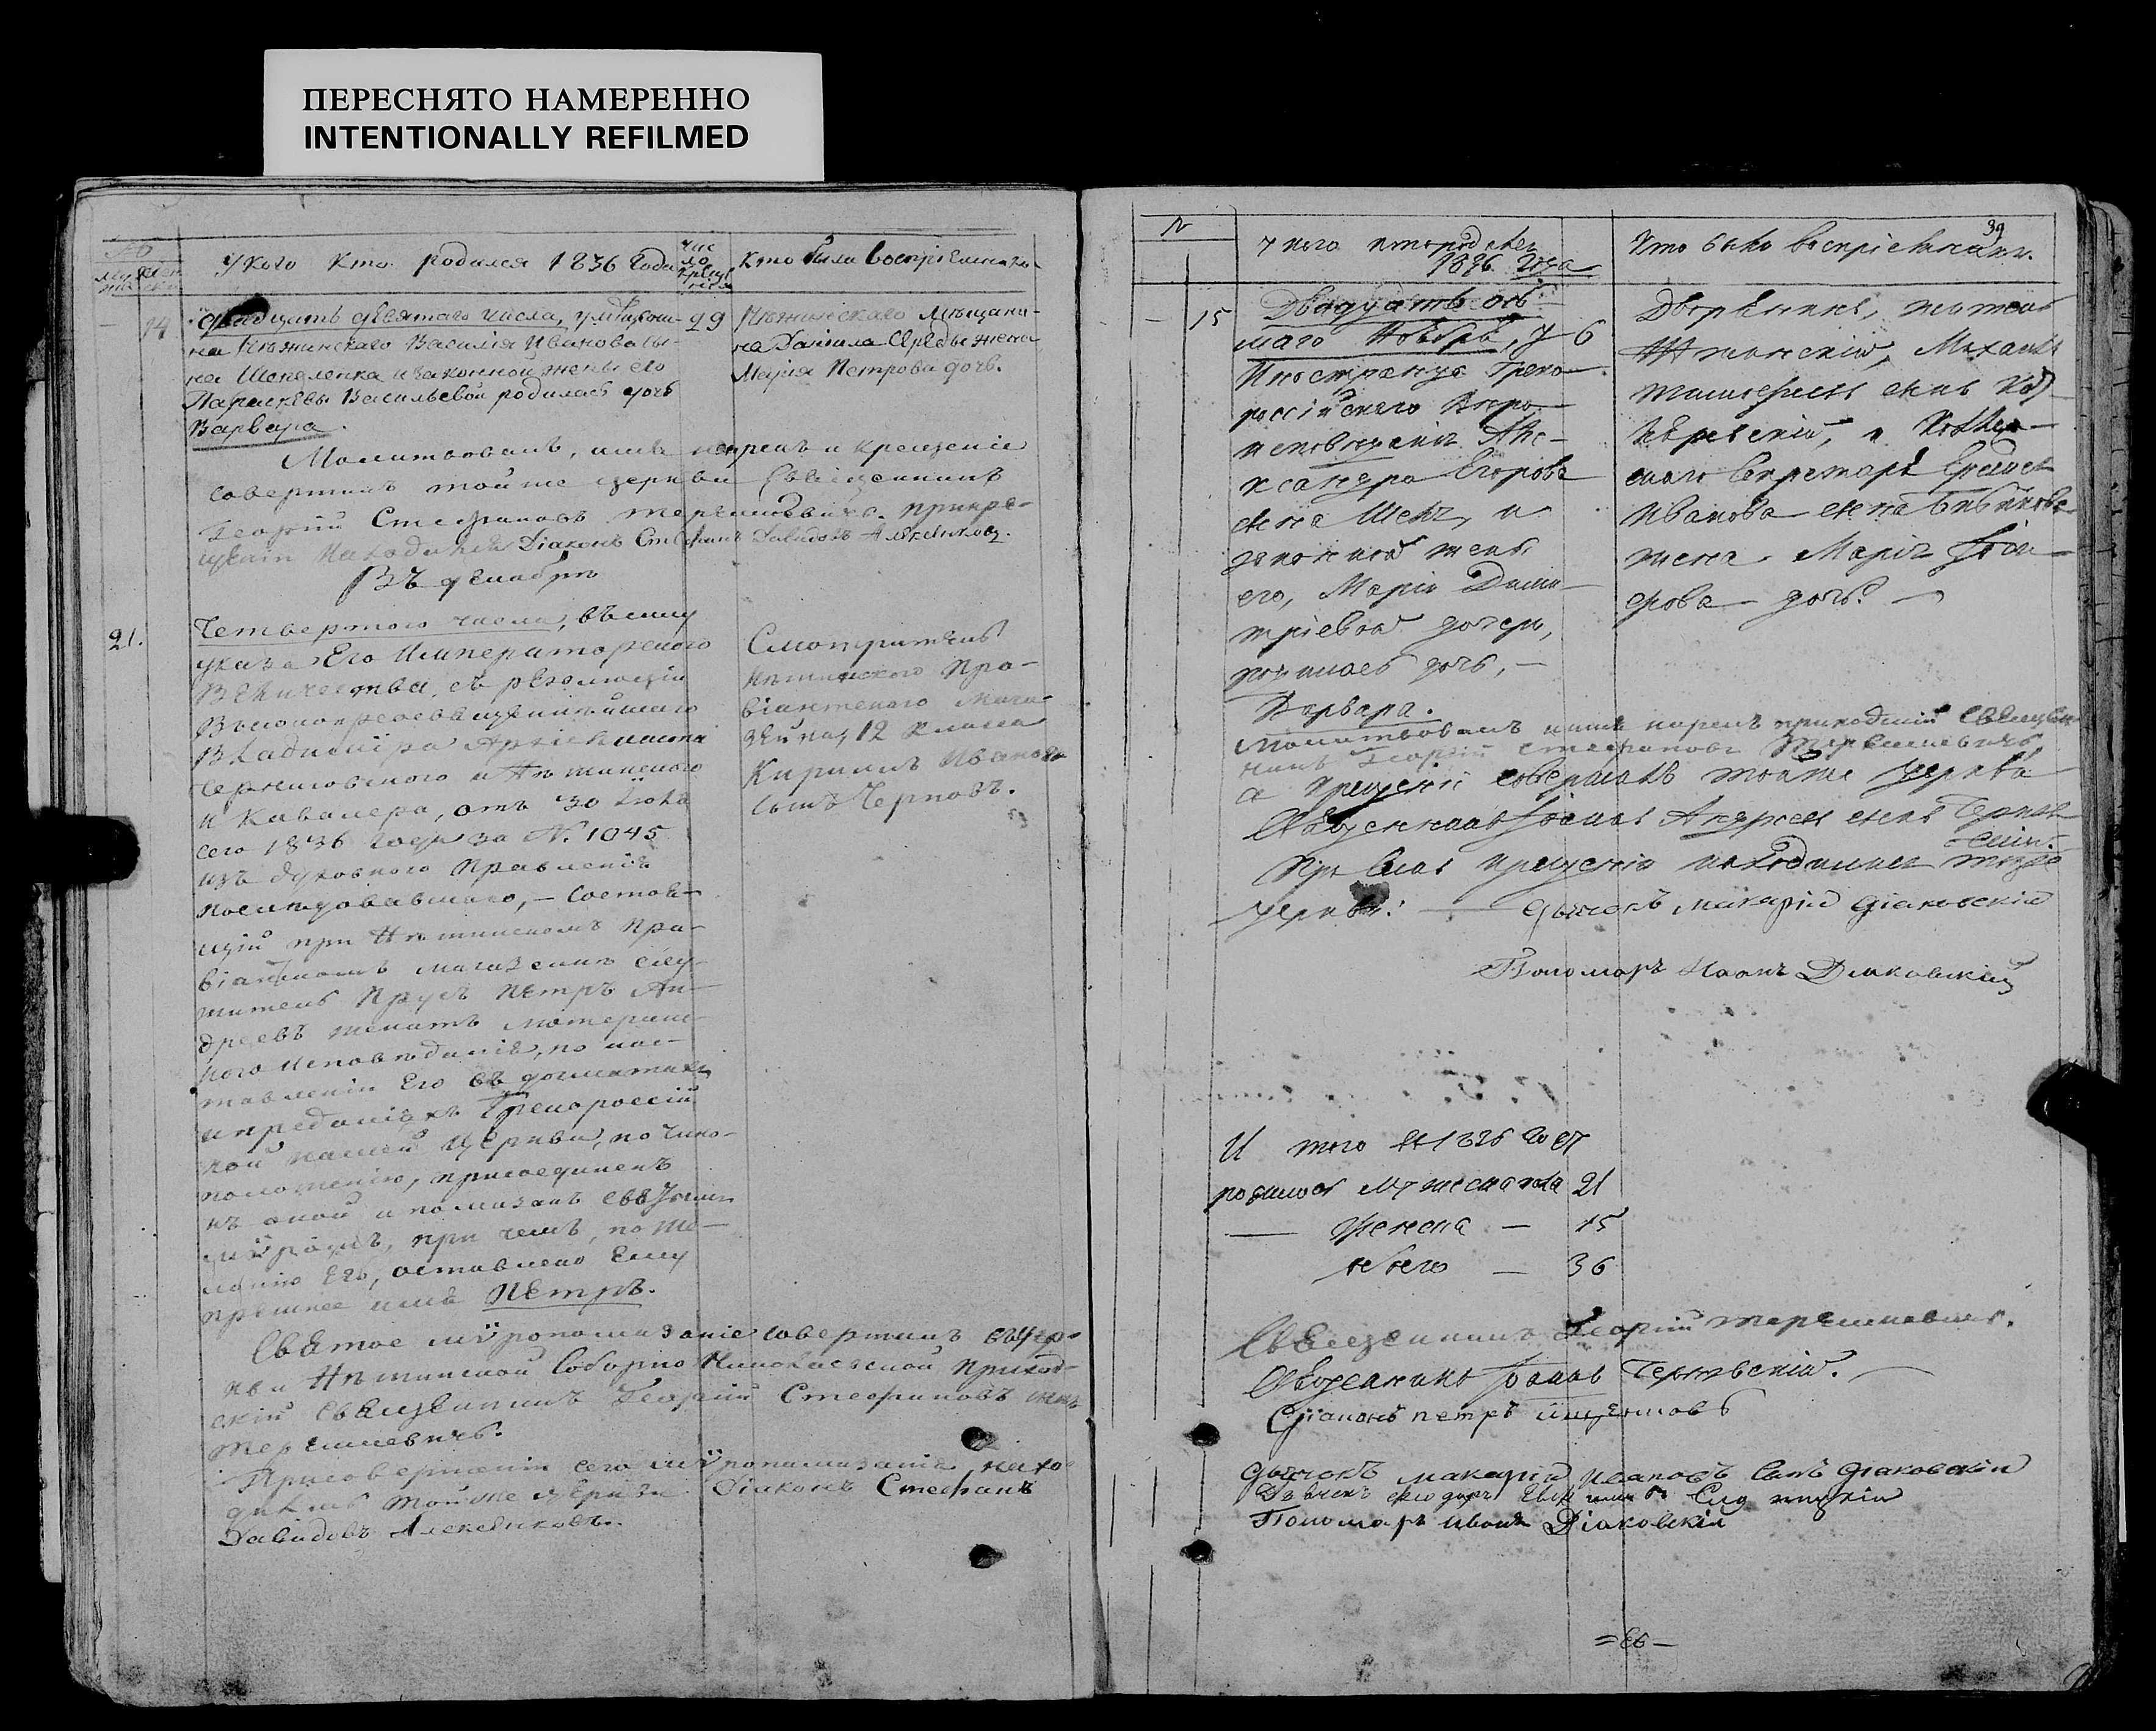 ПЕРЕСНЯТО НАМЕРЕННО
INTENTIONALLY REFILMED
У кого кто родился 1836 Года
Чис ло креще нія
Кто были воспріемники
14
Двадцать девятаго числа, у мѣщани-
29
на Нѣжинскаго Василія Иванова сы-
на Шепеленка и законной жены его
Параскевы Васильевой родилась дочь
Варвара.
Нѣжинскаго мѣщани-
на Даніила Середы жена
Марія Петрова дочь.
Молитвовалъ, имя нарекъ и крещеніе
совершилъ тойже церкви Священникъ
Георгій Стефановъ при кре-
щеніи находился Діаконъ Стефанъ Давидовъ
Въ декабрѣ
21.
Четвертого числа, въ силу
указа Его Императорского
Величества, съ резолюціи
Высокопреосвященнѣйшаго
Владиміра Архіепископа
Черниговского и Нѣжинского
и Кавалера, отъ 30 Іюля
сего 1836 года за N. 1045
изъ духовного Правленія
послѣдовавшаго, – состоя-
щій при Нѣжинскомъ про-
віантскомъ магазинѣ слу-
житель Прусъ Петръ Ан-
дреевъ
ного исповѣданія, по нас-
тавленіи Его въ догматахъ
и преданіяхъ Грекороссій
кой нашей Церкви, по чино-
положенію, присоединенъ
къ оной и помазанъ святымъ
мѵромъ, при чемъ, по же-
ланію Его, оставлено Ему
прежнее имя Петръ.
Смотритель
Нѣжинского про-
віантского мага-
зейна, 12 класса
Кириллъ Ивановъ
сынъ Черновъ.
Святое мѵропомазаніе совершилъ въ цер-
кви Нѣжинской Соборно Николаевской приход-
скій Священникъ Георгій Стефановъ сынъ
При совершеніи сего мѵропомазанія, нахо-
дился тойже церкви Діаконъ Стефанъ
Давидовъ
N
39
У кого кто родился
1836 Года
Кто были воспріемники.
15
Двадцать ось-
маго Ноября, у
6
Иностранца Греко-
россійского Вѣро-
исповѣданія Але-
ксандра Егорова
сына и
законной жены
его, Маріи Дими-
тріевой дочери,
родилась дочь,
Варвара.
Дворянинъ,
Михаилъ
сынъ
и
Секретаря
Иванова сына
жена Марія
дочь.
Молитвовалъ и имя нарекъ приходскій Священ
никъ Георгій Стефановъ
а крещеніе совершилъ тойже церкви
Священникъ Іоаннъ Андреевъ сынъ
При семъ крещеніи находился тойже
церкви: дьячокъ Макарій Діаковскій
Пономарь Иоанъ Діаковскій
И того въ 1836 годѣ
родилось мужеска пола 21
женска – 15
всего – 36
Священникъ Георгій
Священникъ Іоаннъ
Діаконъ Петръ
Дьячокъ Макарій Ивановъ сынъ Діаковскій
Пономарь Иванъ Діаковскій